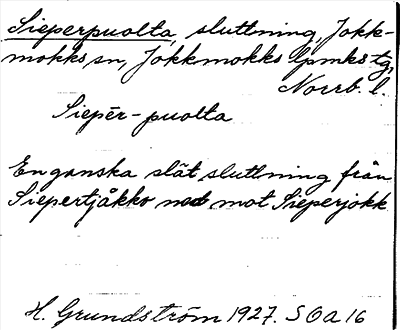 Sieperpuolta, sluttning, Jokk-
mokks sn, Jokkmokks lpmks tg,
Norrb. l.
Siepēr-puolta
En ganska slät sluttning från
Siepertjåkko ned mot Sieperjokk
H. Grundström 1927. S O A 16